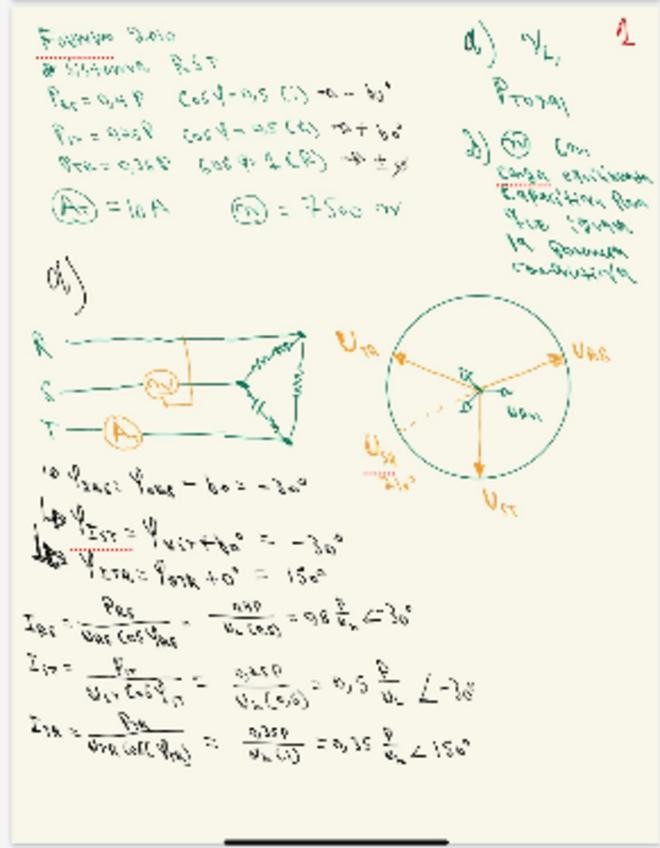 Febrero 2010
# Sistema RST
P_RS = 0,4P Cos φ = 0,5 (i) → - 60°
P_ST = 0,25P Cos φ = 0,5 (c) → + 60°
P_TR = 0,35P Cos φ = 1 (R)
(A_T) = 10A (W) = 7500 W
a) U_L,
P_TOTAL
b) (W) Con
carga equilibrada
Capacitiva Para
que
la Potencia
1
a)
R
S
T
W
A
U_TR
U_RS
U_RN
U_SR
210°
U_ST
φ_IRS = φ_URS - 60 = -30°
φ_IST = φ_UST + 60° = -30°
φ_ITR = φ_UTR + 0° = 150°
I_RS = P_RS / U_RS Cos φ_RS = 0,4P / U_L (0,5) = 0,8 P/U_L ∠-30°
I_ST = P_ST / U_ST Cos φ_ST = 0,25P / U_L (0,5) = 0,5 P/U_L ∠-30
I_TR = P_TR / U_TR Cos(φ_TR) = 0,35P / U_L (1) = 0,35 P/U_L ∠150°